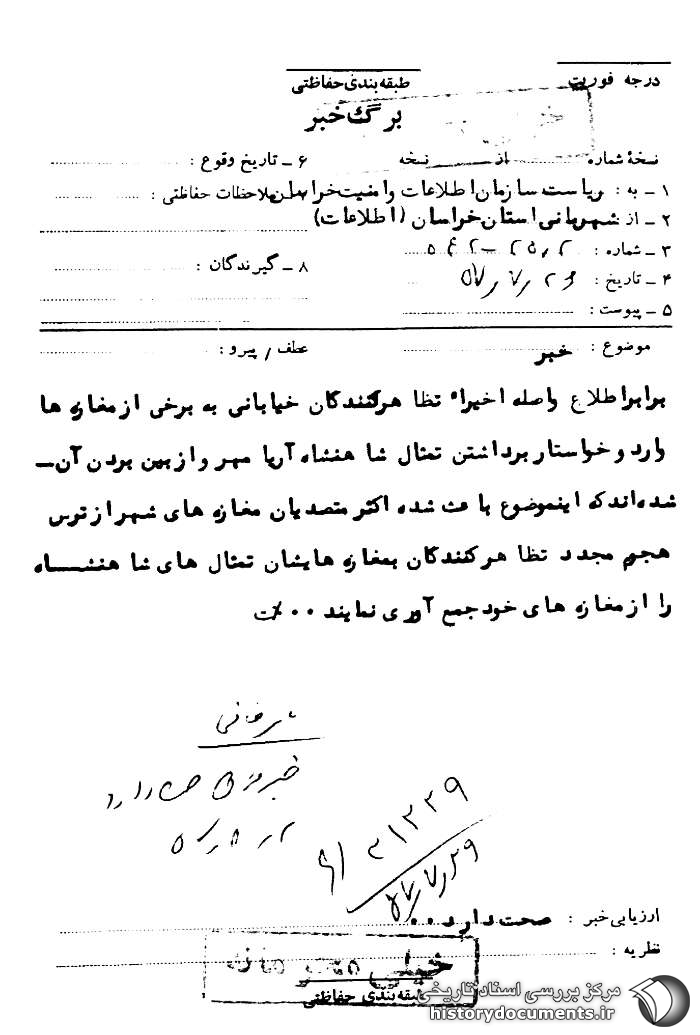 درجه فوریت
طبقه‌بندی حفاظتی
برگ خبر
نسخهٔ شماره از نسخه
۶ ـ تاریخ وقوع :
۱ ـ به : ریاست سازمان اطلاعات و امنیت خراسان
ملاحظات حفاظتی :
۲ ـ از شهربانی استان خراسان (اطلاعات)
۳ ـ شماره :
۸ ـ گیرندگان :
۴ ـ تاریخ :
۵ ـ پیوست :
موضوع : خبر
عطف / پیرو :
برابر اطلاع واصله اخیراً تظاهرکنندگان خیابانی به برخی از مغازه ها
وارد و خواستار برداشتن تمثال شاهنشاه آریا مهر و از بین بردن آن ـ
شده‌اند که اینموضوع باعث شده اکثر متصدیان مغازه های شهر از ترس
هجوم مجدد تظاهرکنندگان بمغازه هایشان تمثال های شاهنشــاه
را از مغازه های خود جمع آوری نمایند ۰۰
۲۱۳۳۹
ارزیابی خبر : صحت دارد ۰۰
نظریه :
خیلی محرمانه
طبقه‌بندی حفاظتی
مرکز بررسی اسناد تاریخی
historydocuments.ir